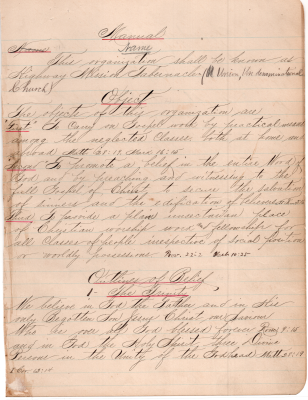 Manual
Name
This organization shall be known as
Highway Mission Tabernacle (A Union, Undenominational
Church)
Object
The objects of this organization are
First To Carry on Gospel work by practical means
among the neglected Classes both at home and
abroad
Second To promote a belief in the entire Word of
God by preaching and witnessing to the
full Gospel of Christ, to secure the salvation
of sinners and the edification of believers
Third To provide a plain unsectarian place
of Christian worship work and fellowship for
all Classes of people irrespective of social position
or worldly possessions. Prov. 22-2
Outline of Belief
1- The Trinity
We believe in God the Father and in His
only Begotten Son Jesus Christ our Saviour
Who are one God blessed forever Rom 9-5
and in God the Holy Spirit, three Divine
Persons in the Unity of the Godhead Matt 28-19